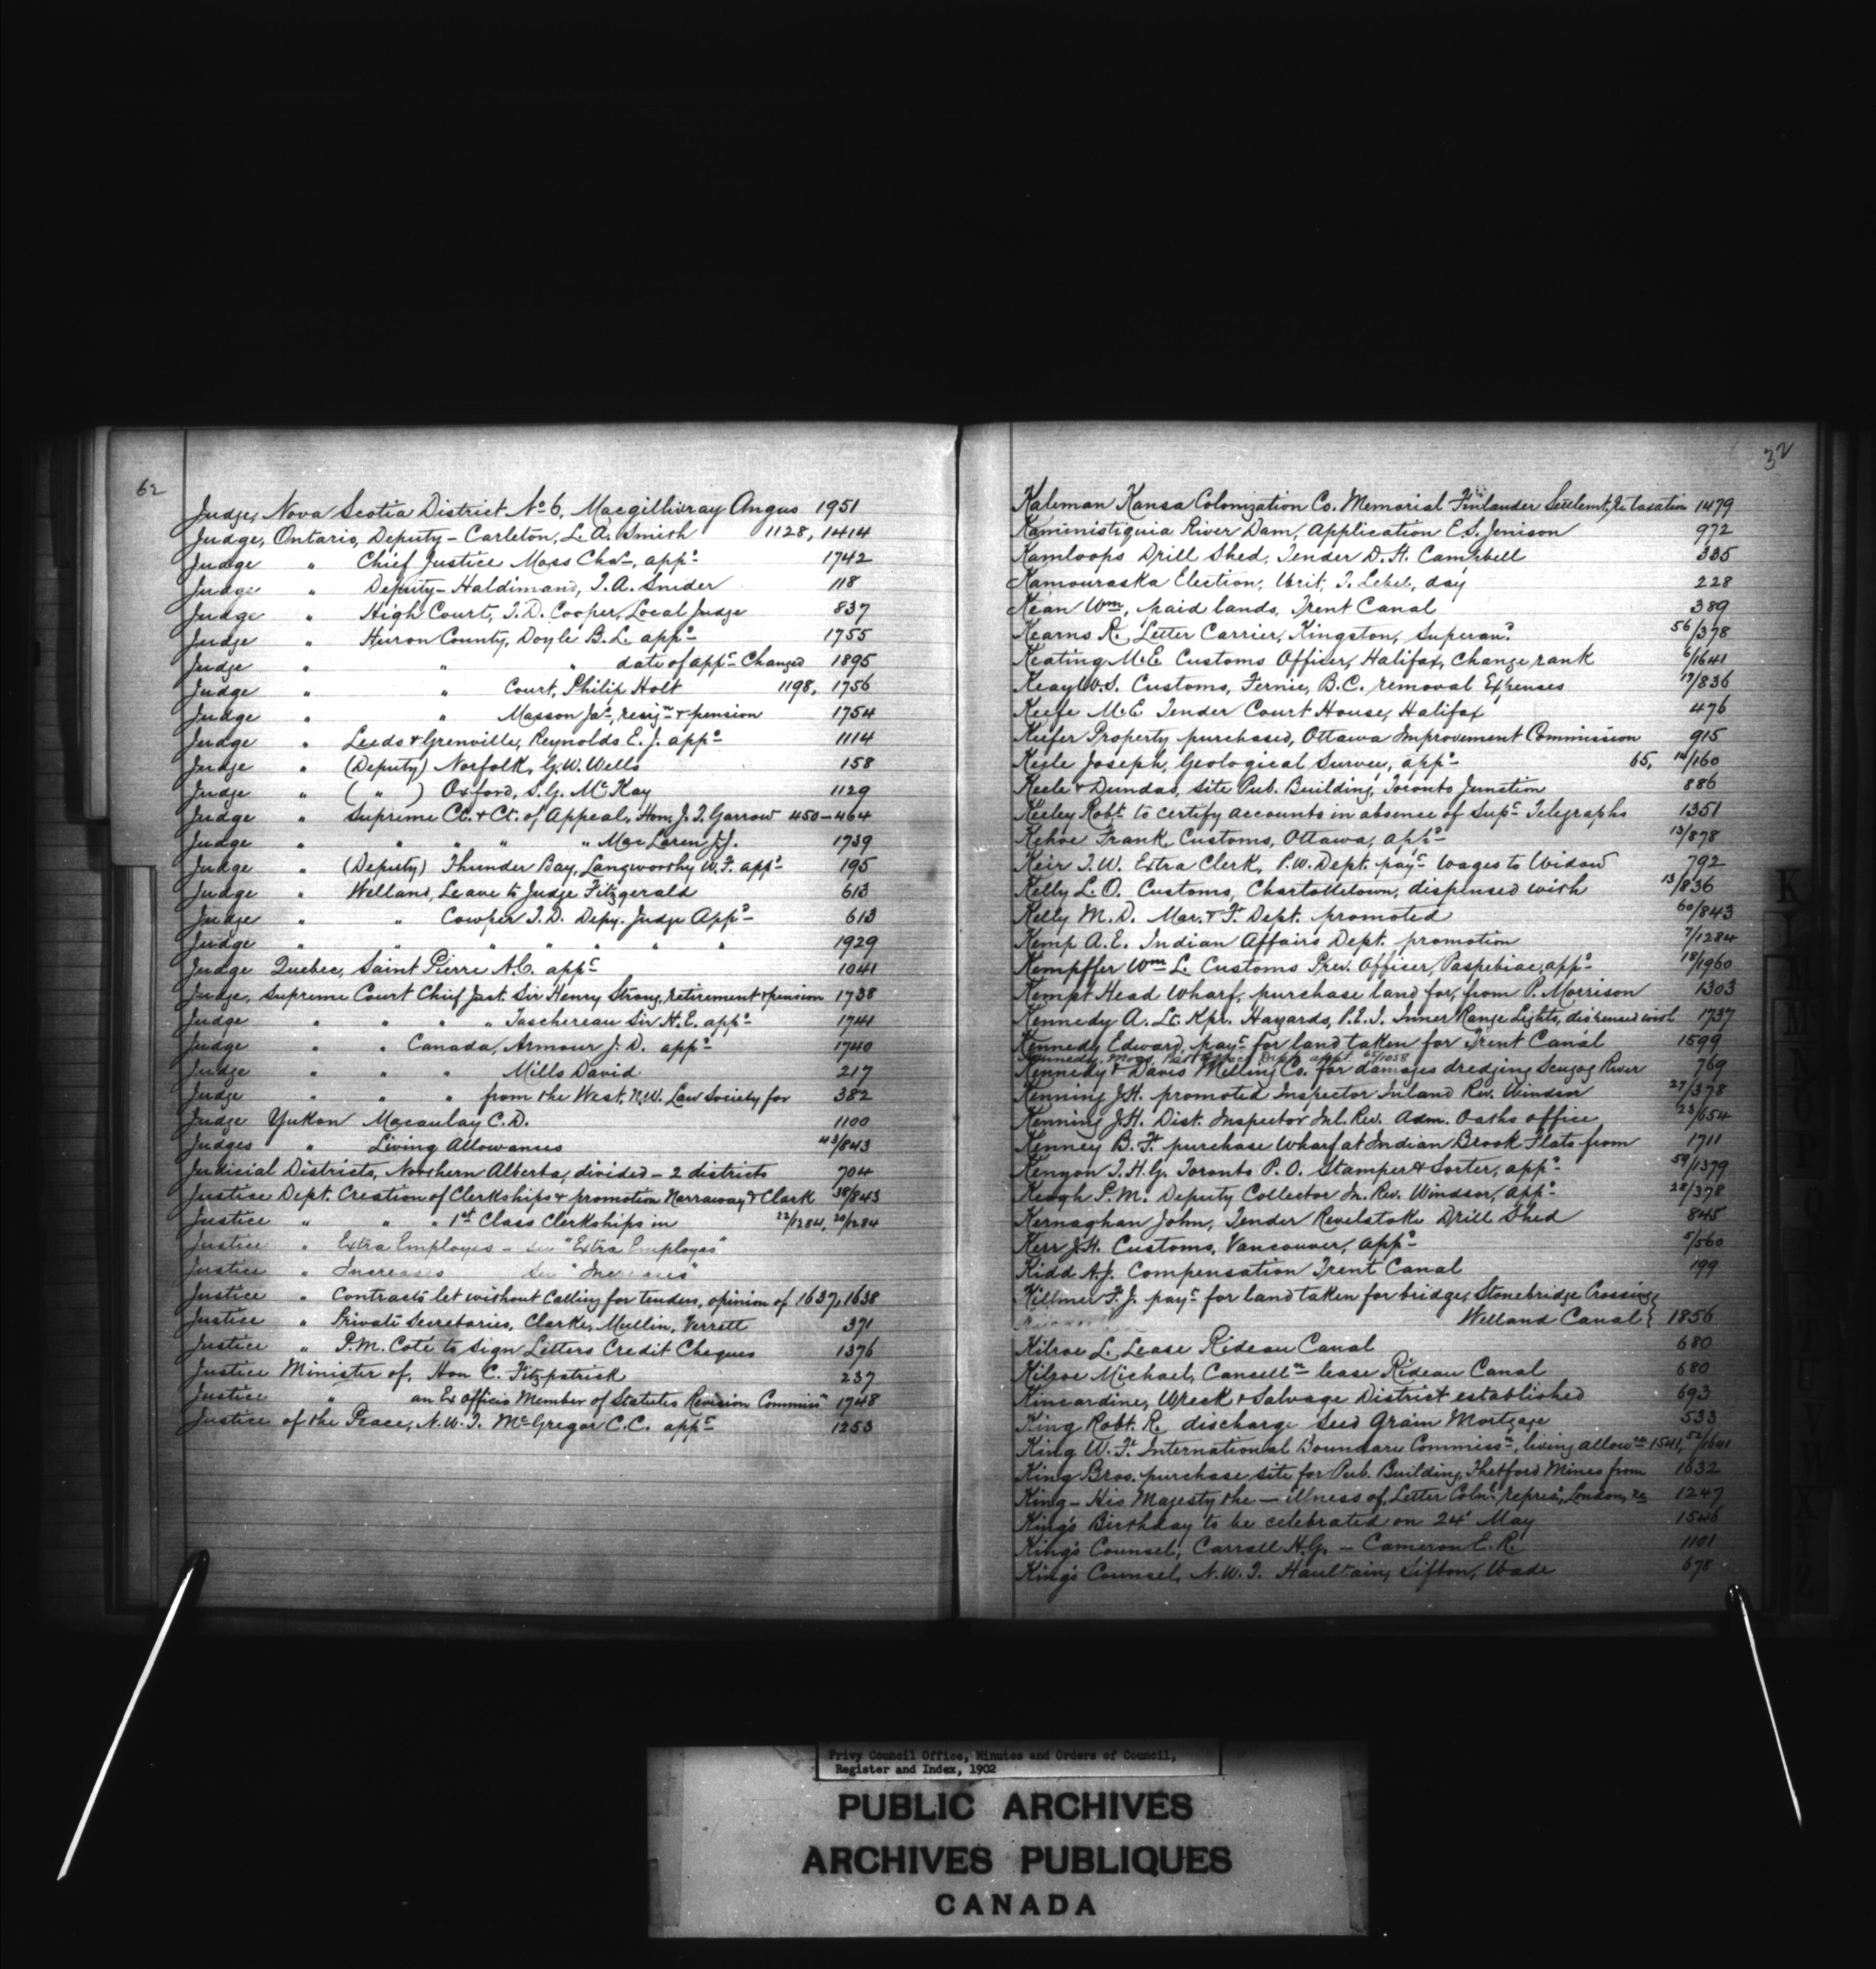 62
Judge, Nova Scotia District No 6, Macgillivray Angus 1951
Judge, Ontario, Deputy - Carleton, L. A. Smith 1128, 1414
Judge " Chief Justice Moss Chas, appt 1742
Judge " Deputy - Haldimand, T. A. Snider 118
Judge " High Court, T. D. Cooper, Local Judge 837
Judge " Huron County, Doyle B. L. appt 1755
Judge " " " date of appt Changed 1895
Judge " " Court, Philip Holt 1198, 1756
Judge " " Masson Jas, resign & pension 1754
Judge " Leeds & Grenville, Reynolds E. J. appt 1114
Judge " (Deputy) Norfolk, G. W. Wells 158
Judge " ( " ) Oxford, S. G. McKay 1129
Judge " Supreme Ct. & Ct. of Appeal, Hon. J. T. Garrow 450-464
Judge " " " " " Mac Laren J. J. 1739
Judge " (Deputy) Thunder Bay, Langworthy W. F. appt 195
Judge " Welland, Leave to Judge Fitzgerald 613
Judge " " Cowper T. D. Depy. Judge Appt 613
Judge " " " " " " " 1929
Judge Quebec, Saint Pierre A. C. appt 1041
Judge, Supreme Court Chief Just. Sir Henry Strong, retirement & pension 1738
Judge " " " " Taschereau Sir H. E. appt 1741
Judge " " Canada, Armour J. D. appt 1740
Judge " " " Mills David 217
Judge " " " from the West, N.W. Law Society for 382
Judge Yukon Macaulay C. D. 1100
Judges " Living Allowances 43/843
Judicial Districts, Northern Alberta, divided - 2 districts 704
Justice Dept. Creation of Clerkships & promotion Narraway & Clark 38/843
Justice " " " 1st Class Clerkships in 22/1284, 20/1284
Justice " Extra Employes - see "Extra Employes"
Justice " Increases See "Increases"
Justice " Contracts let without Calling for tenders, opinion of 1637, 1638
Justice " Private Secretaries, Clarke, Mullin, Verrett 371
Justice " P. M. Cote to sign Letters Credit Cheques 1376
Justice Minister of, Hon C. Fitzpatrick 237
Justice " an Ex officio Member of Statutes Revision Commissn 1748
Justice of the Peace, N.W.T. McGregor C. C. appt 1253
32
Kaleman Kansa Colonization Co. Memorial Finlander Settlemt, re taxation 1479
Kaministiquia River Dam, Application E. S. Jenison 972
Kamloops Drill Shed, Tender D. H. Campbell 335
Kamouraska Election, Writ, T. Lebel, day 228
Kean Wm, paid lands, Trent Canal 389
Kearns R. Letter Carrier, Kingston, Superan. 56/378
Keating M. E. Customs Officer, Halifax, change rank 6/1641
Keay W. S. Customs, Fernie, B.C. removal Expenses 17/836
Keefe M. E. Tender Court House, Halifax 476
Keefer Property purchased, Ottawa Improvement Commission 915
Keele Joseph, Geological Survey, appt 65, 14/160
Keele & Dundas, site Pub. Building, Toronto Junction 886
Keeley Robt. to certify accounts in absence of Supt Telegraphs 1351
Kehoe Frank, Customs, Ottawa, appt 13/878
Keir T. W. Extra Clerk, P.W. Dept. payt wages to Widow 792
Kelly L. O. Customs, Charlottetown, dispensed with 13/836
Kelly M. D. Mar. & F. Dept. promoted 60/843
Kemp A. E. Indian Affairs Dept. promotion 7/1284
Kempffer Wm L. Customs Prev. Officer, Paspebiac, appt 18/1960
Kempt Head Wharf, purchase land for, from P. Morrison 1303
Kennedy A. Lt. Kpr. Hazards, P.E.I. Inner Range Lights, dispensed with 1737
Kennedy Edward, payt for land taken for Trent Canal 1599
Kennedy, Post Office Dept. appt. 65/1058
Kennedy & Davis Milling Co. for damages dredging Scugog River 769
Kenning J. H. promoted Inspector Inland Rev. Windsor 27/378
Kenning J. H. Dist. Inspector Inl. Rev. Adm. Oaths office 23/654
Kenney B. F. purchase Wharf at Indian Brook Flats from 1711
Kenyon T. H. G. Toronto P. O. Stamper & Sorter, appt 59/1379
Keogh P. M. Deputy Collector In. Rev. Windsor, appt 28/378
Kernaghan John, Tender Revelstoke Drill Shed 845
Kerr J. H. Customs, Vancouver, appt 5/560
Kidd A. J. Compensation Trent Canal 199
Killmer F. J. payt for land taken for bridge, Stonebridge Crossing,
Welland Canal } 1856
Kilroe L. Lease Rideau Canal 680
Kilroe Michael, Cancelln lease Rideau Canal 680
Kincardine, Wreck & Salvage District established 693
King Robt. R. discharge Seed Grain Mortgage 533
King W. F. International Boundary Commissn, living allowce 1541, 52/1641
King Bros. purchase site for Pub. Building, Thetford Mines from 1632
King - His Majesty the - illness of, Letter Colnl repres., London, re 1247
King's Birthday to be celebrated on 24' May 1546
King's Counsel, Carroll H. G. - Cameron E. R. 1101
King's Counsel, N.W.T. Haultain, Sifton, Wade 678
K
Privy Council Office, Minutes and Orders of Council,
Register and Index, 1902
PUBLIC ARCHIVES
ARCHIVES PUBLIQUES
CANADA